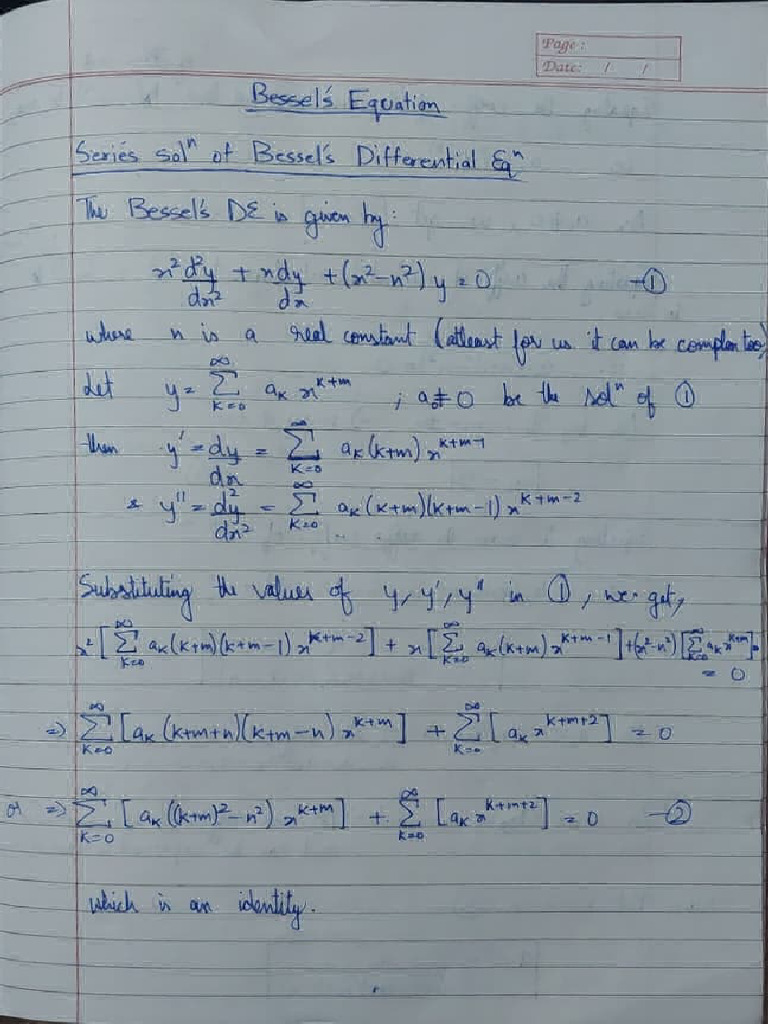 Page:
Date: / /
Bessel's Equation
Series solⁿ of Bessel's Differential Eqⁿ
The Bessel's DE is given by:
x² d²y/dx² + x dy/dx + (x²-n²) y = 0 -①
where n is a real constant (atleast for us it can be complex too)
Let y = ∑_{k=0}^{∞} a_k x^{k+m} ; a₀≠0 be the solⁿ of ①
then y' = dy/dx = ∑_{k=0}^{∞} a_k (k+m) x^{k+m-1}
& y'' = d²y/dx² = ∑_{k=0}^{∞} a_k (k+m)(k+m-1) x^{k+m-2}
Substituting the values of y, y', y'' in ①, we get,
x² [∑_{k=0}^{∞} a_k (k+m)(k+m-1) x^{k+m-2}] + x [∑_{k=0}^{∞} a_k (k+m) x^{k+m-1}] + (x²-n²) [∑_{k=0}^{∞} a_k x^{k+m}]
= 0
⇒ ∑_{k=0}^{∞} [a_k (k+m+n)(k+m-n) x^{k+m}] + ∑_{k=0}^{∞} [a_k x^{k+m+2}] = 0
or ⇒ ∑_{k=0}^{∞} [a_k ((k+m)²-n²) x^{k+m}] + ∑_{k=0}^{∞} [a_k x^{k+m+2}] = 0 -②
which is an identity.